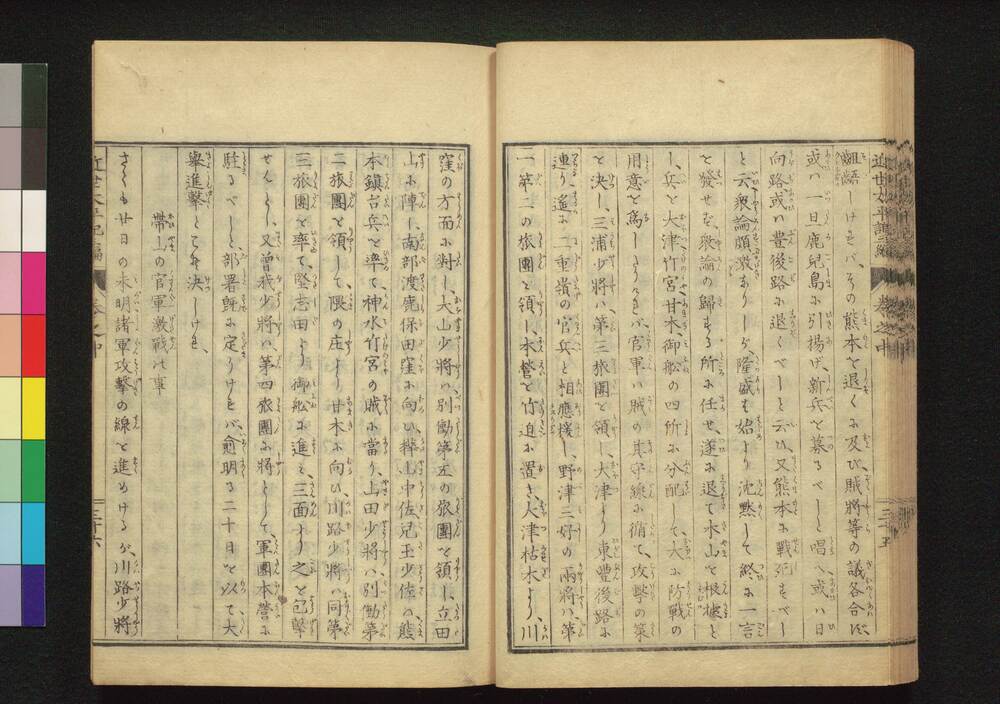 齟齬しけれバ、その熊本を退くに及び、賊将等の議各合はず、
或ハ一旦鹿兒島に引揚げ、新兵を募るべしと唱へ、或ハ日
向路或ハ豊後路に退くべしと云ひ、又熊本に戰死すべし
と云、衆論頗激ありしが、隆盛は始より沈黙して終に一言
を發せず、衆論の歸する所に任せ、遂に退て木山を根據と
し、兵を大津竹宮甘木、御船の四所に分配して、大に防戰の
用意を爲しけれバ、官軍ハ賊の其守線に循て、攻撃の策
を决し、三浦少將ハ、第三旅團を領し、大津より東豊後路に
連り、遙に二重嶺の官兵と相應援し、野津三好の兩將ハ、第
一第二の旅團を領し、本營を竹迫に置き、大津枯木より、川
窪の方面に對し、大山少將ハ別働第五の旅團を領し、立田
山に陣し、南部渡鹿保田窪に向ひ、樺山中佐兒玉少佐ハ熊
本鎮台兵を率て、神水竹宮の賊に當り、山田少將ハ別働第
二旅團を領して、隈の庄より甘木に向ひ、川路少將ハ同第
三旅團を率て、堅志田より御舩に進み、三面より之を包撃
せんとし、又曾我少將ハ、第四旅團に將として、軍團本營に
駐るべしと、部署既に定りけれバ、愈明る二十日を以て大
擧進撃とこそ决しけれ、
帶山の官軍激戰の事
さても廿日の未明諸軍攻撃の線を進めけるが、川路少將